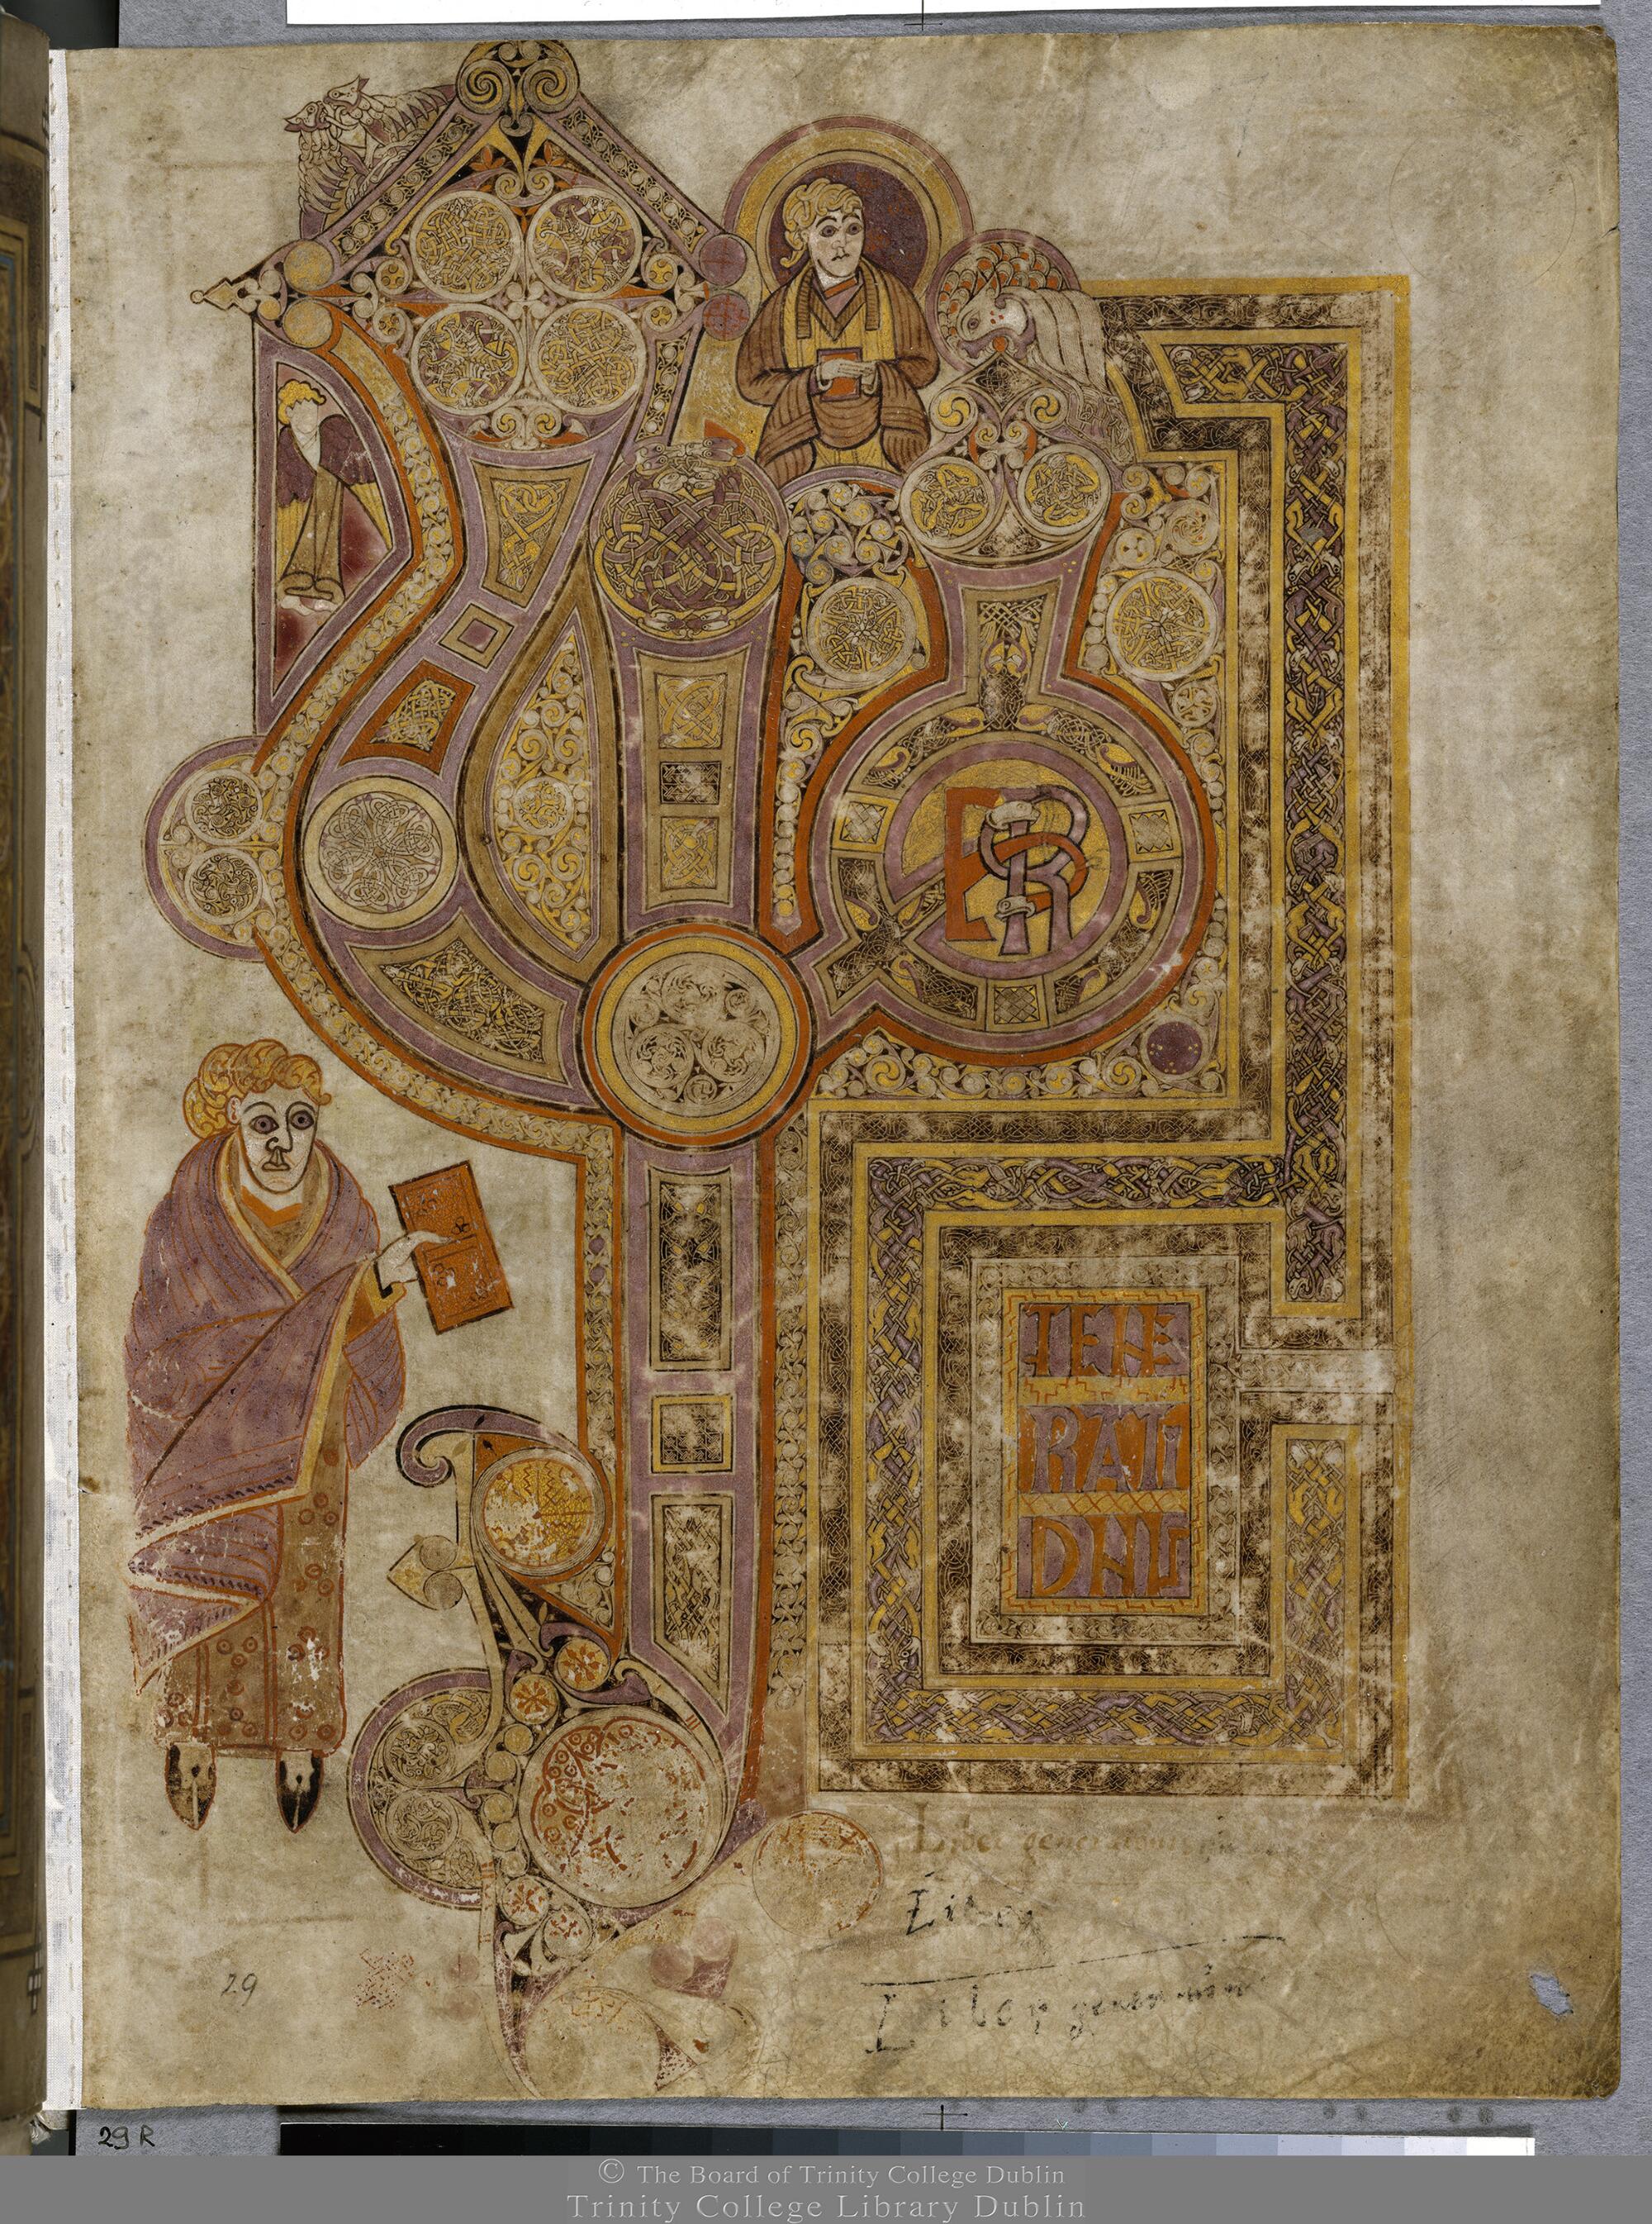 LIB
ER
GENE
RATI
ONIS
Liber generationis
Liber
Liber
29
29 R
© The Board of Trinity College Dublin
Trinity College Library Dublin